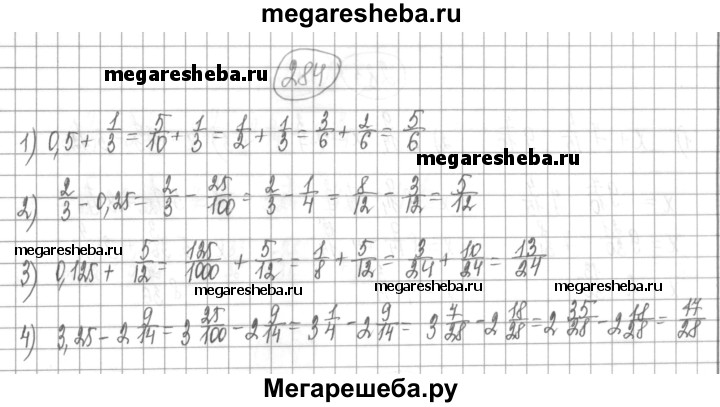 megaresheba.ru
megaresheba.ru 284
1) 0,5 + 1/3 = 5/10 + 1/3 = 1/2 + 1/3 = 3/6 + 2/6 = 5/6
megaresheba.ru
2) 2/3 - 0,25 = 2/3 - 25/100 = 2/3 - 1/4 = 8/12 - 3/12 = 5/12
megaresheba.ru
3) 0,125 + 5/12 = 125/1000 + 5/12 = 1/8 + 5/12 = 3/24 + 10/24 = 13/24
megaresheba.ru megaresheba.ru megaresheba.ru
4) 3,25 - 2 9/14 = 3 25/100 - 2 9/14 = 3 1/4 - 2 9/14 = 3 7/28 - 2 18/28 = 2 35/28 - 2 18/28 = 17/28
Мегарешеба.ру